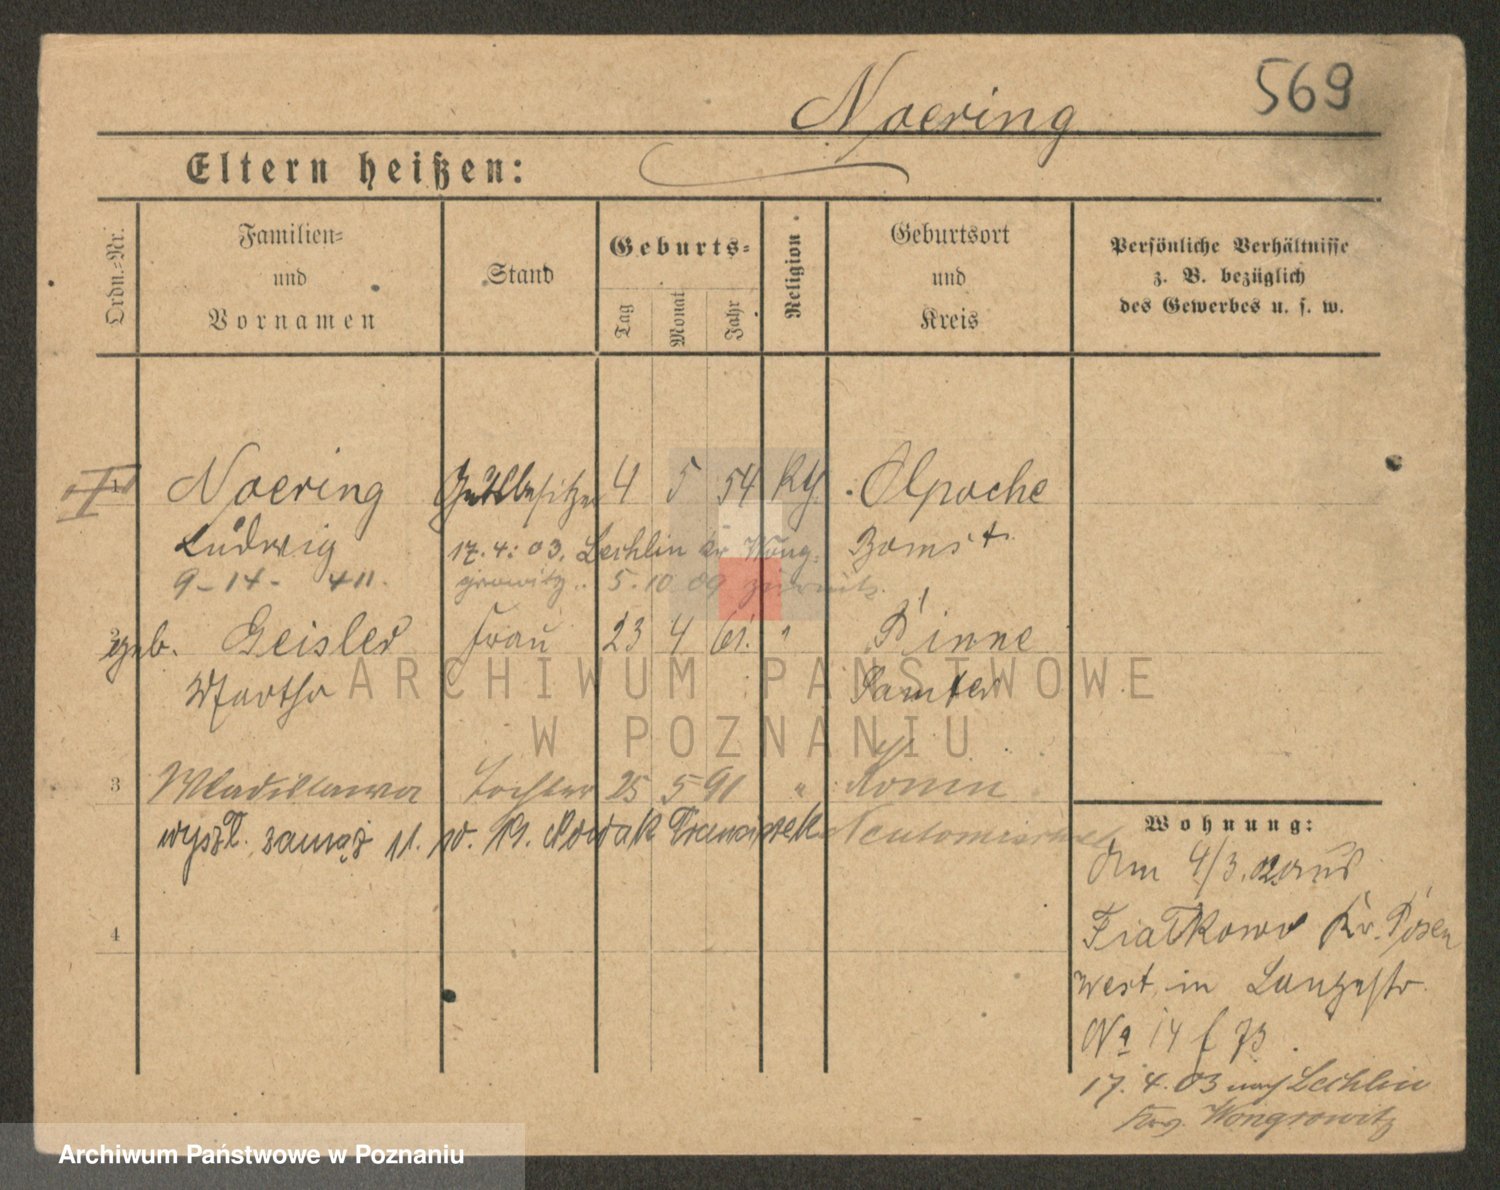 569
Noering
Eltern heißen:
Ordn.-Nr.
Familien-
und
Vornamen
Stand
Geburts-
Tag
Monat
Jahr
Religion
Geburtsort
und
Kreis
Persönliche Verhältnisse
z. B. bezüglich
des Gewerbes u. s. w.
1 Noering Gutsbesitzer 4 5 54 Olpoche
Ludwig 17.4.03. Lechlin Kr Wong-
Bomst
growitz 5.10.09 zurück.
2 geb. Geisler Frau 23 4 61. " Pinne
Martha Samter
3 Wladislawa Tochter 25 5 91 " Konin
wyszł. zamąż Nowak Franciszek Neutomischel
4
Wohnung:
Am 4/3.02 aus
Fiałkowo Kr. Posen
West in Langestr.
No 14 f 73.
17.4.03 nach Lechlin
Wongrowitz
ARCHIWUM PAŃSTWOWE
W POZNANIU
Archiwum Państwowe w Poznaniu